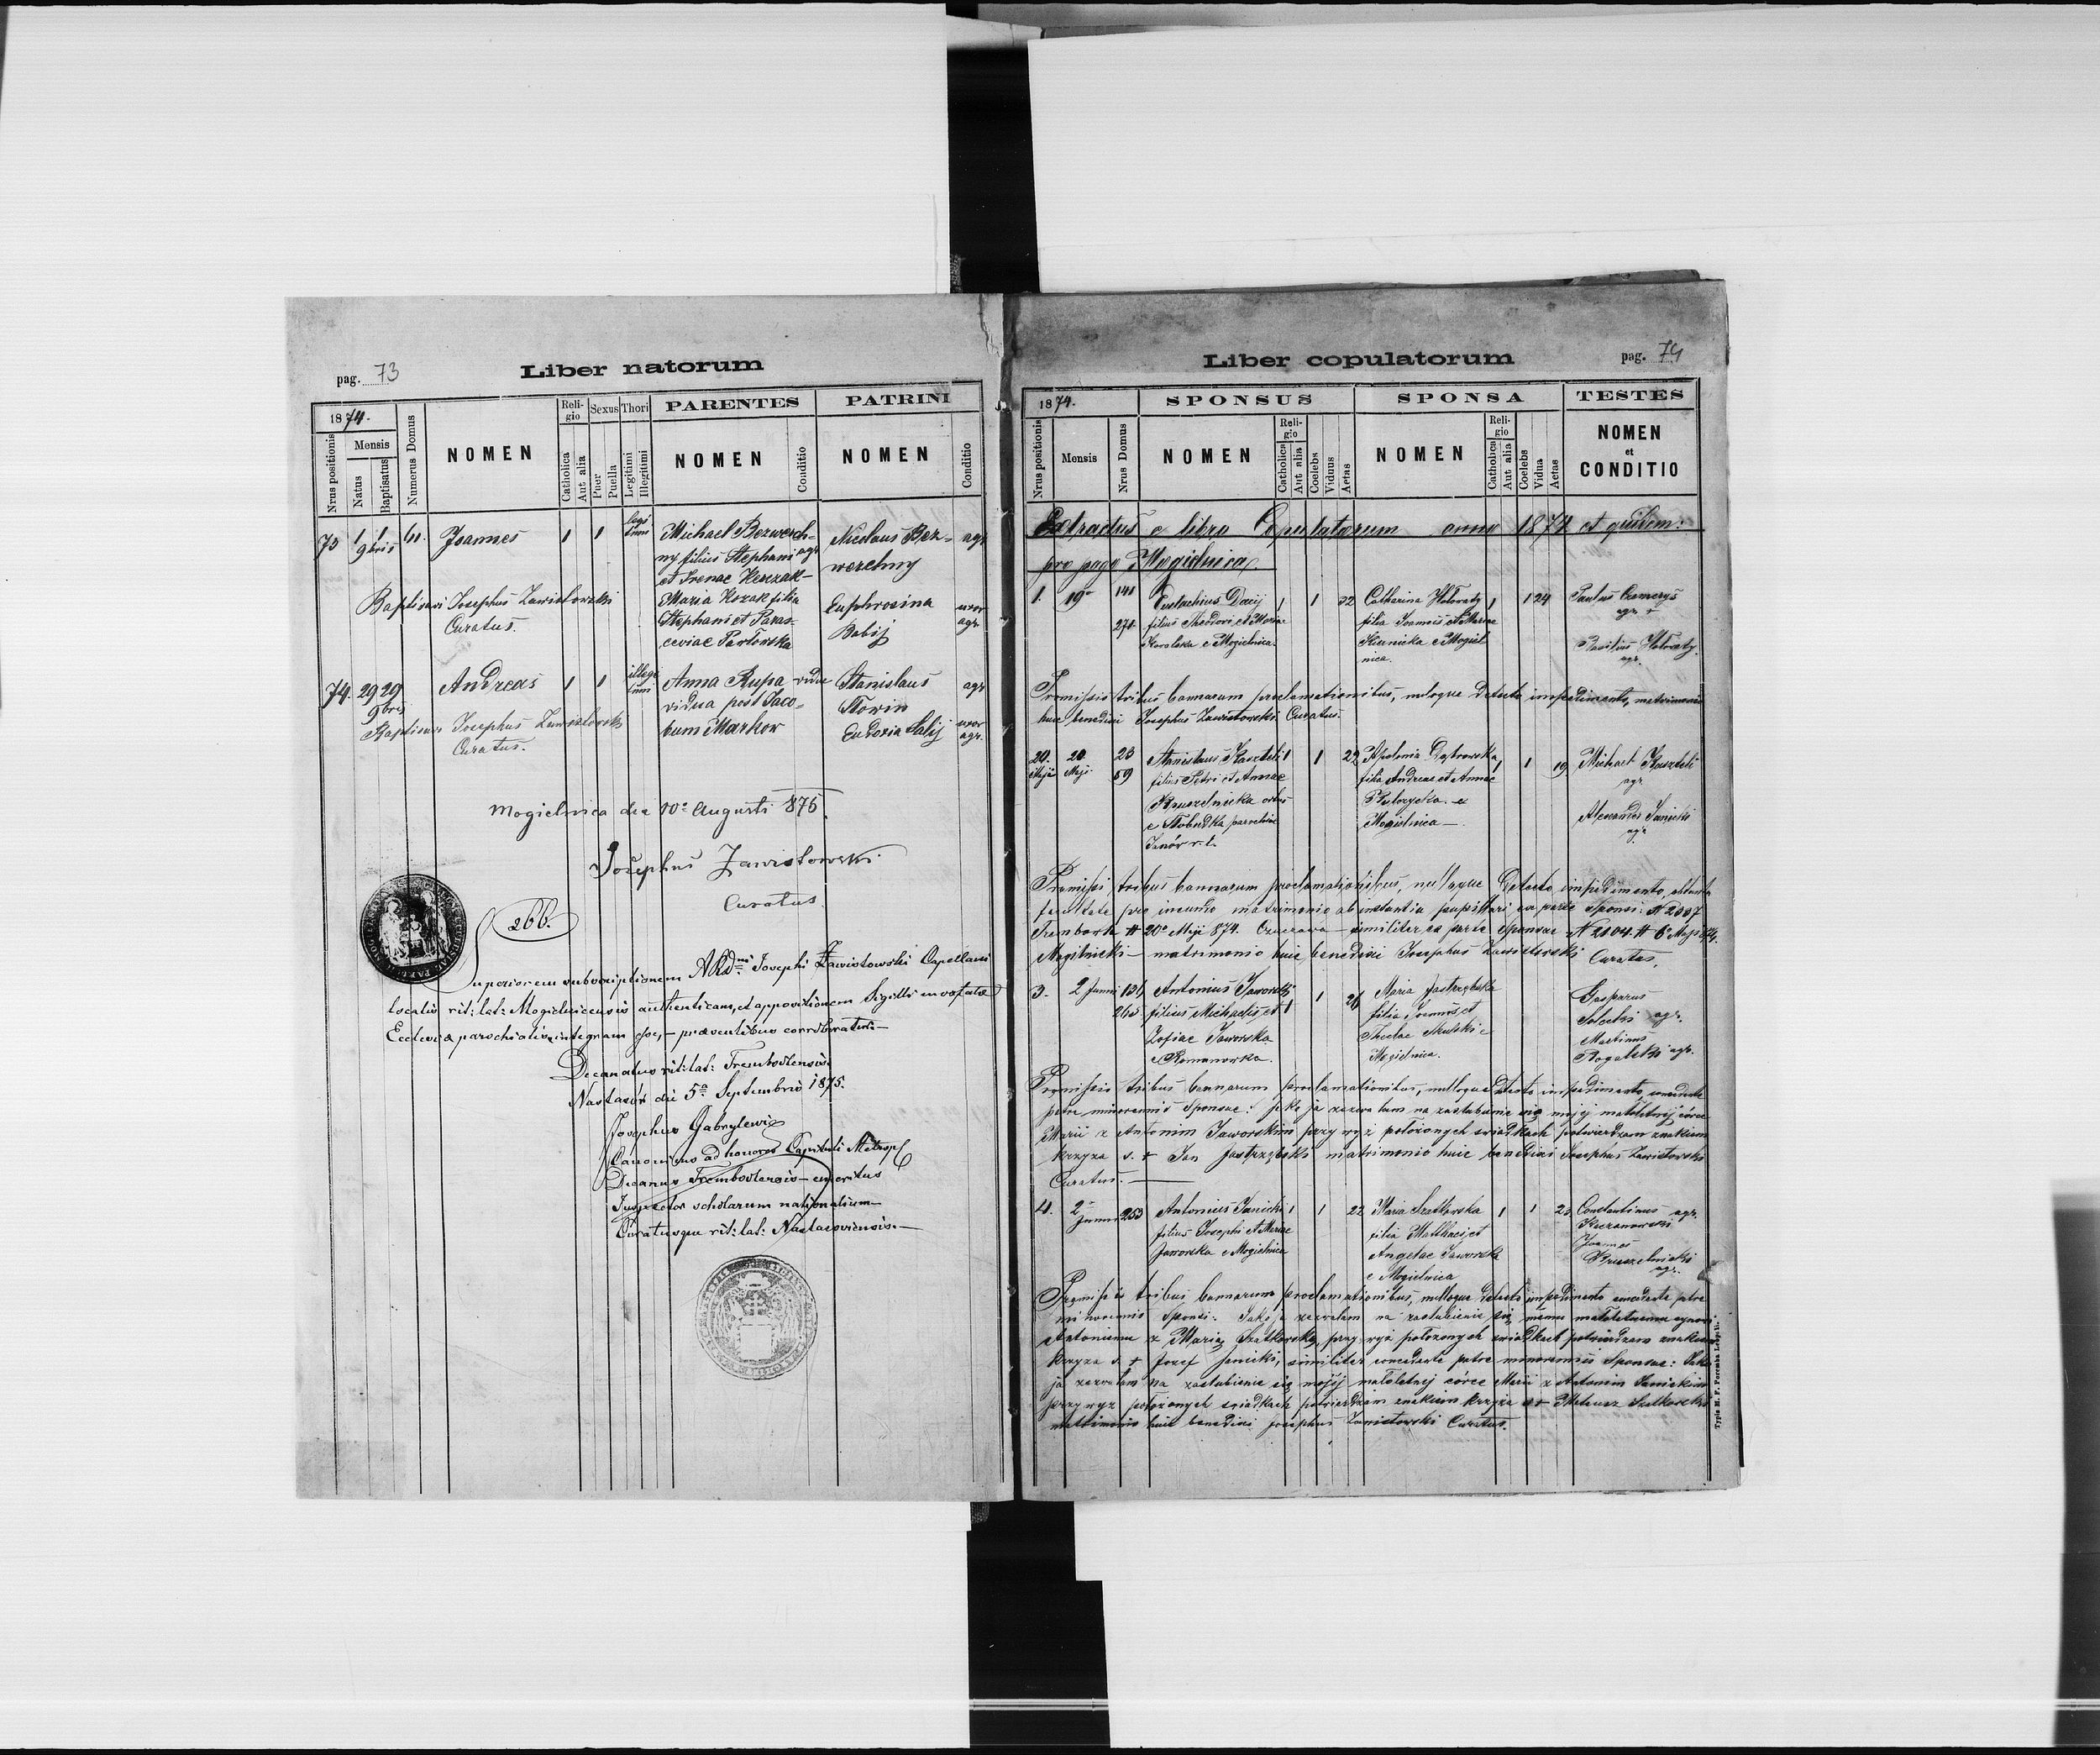 pag. 73
Liber natorum
1874.
Nrus positionis
Mensis
Natus
Baptisatus
Numerus Domus
NOMEN
Religio
Catholica
Aut alia
Sexus
Puer
Puella
Thori
Legitimi
Illegitimi
PARENTES
NOMEN
Conditio
PATRINI
NOMEN
Conditio
73 1 1 61. Joannes 1 1 legi Michael Bezwerch= Nicolaus Bez= agr
9bris timi ny filius Stephani agr werchny
et Irenae Kerczak
Maria Kozak filia Euphrosina uxor
Baptisavi Josephus Zawistowski Stephani et Paras= Babij agr.
Curatus. ceviae Pawłowska
74. 29 29 Andreas 1 1 illegi Anna Rupa vidua Stanislaus agr
9bris timi vidua post Jaco= Słowin
Baptisavi Josephus Zawistowski bum Markow Eudoxia Salij uxor
Curatus. agr.
Mogielnica die 10a Augusti 875.
Josephus Zawistowski
Curatus.
266.
Superiorem subscriptionem ARdmi Josephi Zawistowski Capellani
localis rit: lat: Mogielnicensis authenticam, et appositionem Sigilli
Ecclesiae parochialis integram esse, praesentibus corroboratur.
Decanatus rit: lat: Trembovlensis.
Nastasów die 5a Septembris 1875.
Josephus Gabrylewicz
Canonicus ad honores Capituli Metropl
Decanus Trembovlensis emeritus
Inspector scholarum nationalium
Curatusque rit: lat: Nastasoviensis.
Liber copulatorum
pag. 74
1874.
Nrus positionis
Mensis
Nrus Domus
SPONSUS
NOMEN
Religio
Catholica
Aut alia
Coelebs
Viduus
Aetas
SPONSA
NOMEN
Religio
Catholica
Aut alia
Coelebs
Vidua
Aetas
TESTES
NOMEN
et
CONDITIO
Extractus e libro Copulatorum anno 1874 et quidem:
pro pago Mogielnica.
1. 19a 141 Eustachius Dacij 1 1 32 Catharina Hołowaty 1 1 24 Paulus
271. filius Theodori et Mariae filia Joannis et Mariae agr +
Kowalska e Mogielnica. e Mogiel Basilius Hołowaty
nica. agr.
Praemissis tribus bannorum proclamationibus, nulloque detecto impedimento, matrimonio
huic benedixi Josephus Zawistowski Curatus.
20. 23 Stanislaus Kaszteli 1 1 22 Apolonia Dąbrowska 1 1 19 Michael Kaszteli
Maji 59 filius Petri et Annae filia Andreae et Annae agr.
Bruszelnicka ortus e Alexander Janicki
e Słobudka parochiae Mogielnica agr.
Janów r. l.
Praemissis tribus bannorum proclamationibus, nulloque detecto impedimento, obtenta
facultate pro ineundo matrimonio ab instantia pupillari ex parte Sponsi: N 2007
Trembowla # 20a Maji 874. similiter ex parte Sponsae N 2104 # 6a Maji 874.
matrimonio huic benedixi Josephus Zawistowski Curatus.
3. 2 Junii Antonius Jaworski 1 26 Maria Jastrzębska Gasparus
265 filius Michaelis et 1 filia Joannis et agr.
Zofiae Jaworska Theclae Martinus
e Romanówka. Mogielnica. Rogalski agr.
Praemissis tribus bannorum proclamationibus, nulloque detecto impedimento, concedente
patre minorennis Sponsae: Jako ja zezwalam na zaślubienie się mojej małoletniej córce
Marii z Antonim Jaworskim przy wyż położonych świadkach potwierdzam znakiem
krzyża ś. + Jan Jastrzębski matrimonio huic benedixi Josephus Zawistowski
Curatus.
4. 2a 253 Antonius Janicki 1 1 22 Maria Szatkowska 1 1 Constantinus agr.
Junii filius Josephi et Mariae filia Matthaei et
Jaworska e Mogielnica Angelae Jaworska Joannes
e Mogielnica Bruszelnicki
agr.
Praemissis tribus bannorum proclamationibus, nulloque detecto impedimento concedente patre
minorennis Sponsi: Jako ja zezwalam na zaślubienie się memu małoletniemu synowi
Antoniemu z Marią Szatkowską przy wyż położonych świadkach potwierdzam znakiem
krzyża ś. + Józef Janicki, similiter concedente patre minorennis Sponsae: Jako
ja zezwalam na zaślubienie się mojej małoletniej córce Marii z Antonim Janickim
przy wyż położonych świadkach potwierdzam znakiem krzyża ś + Mateusz Szatkowski
matrimonio huic benedixi Josephus Zawistowski Curatus.
Typis H. F. Poremba Leopoli.